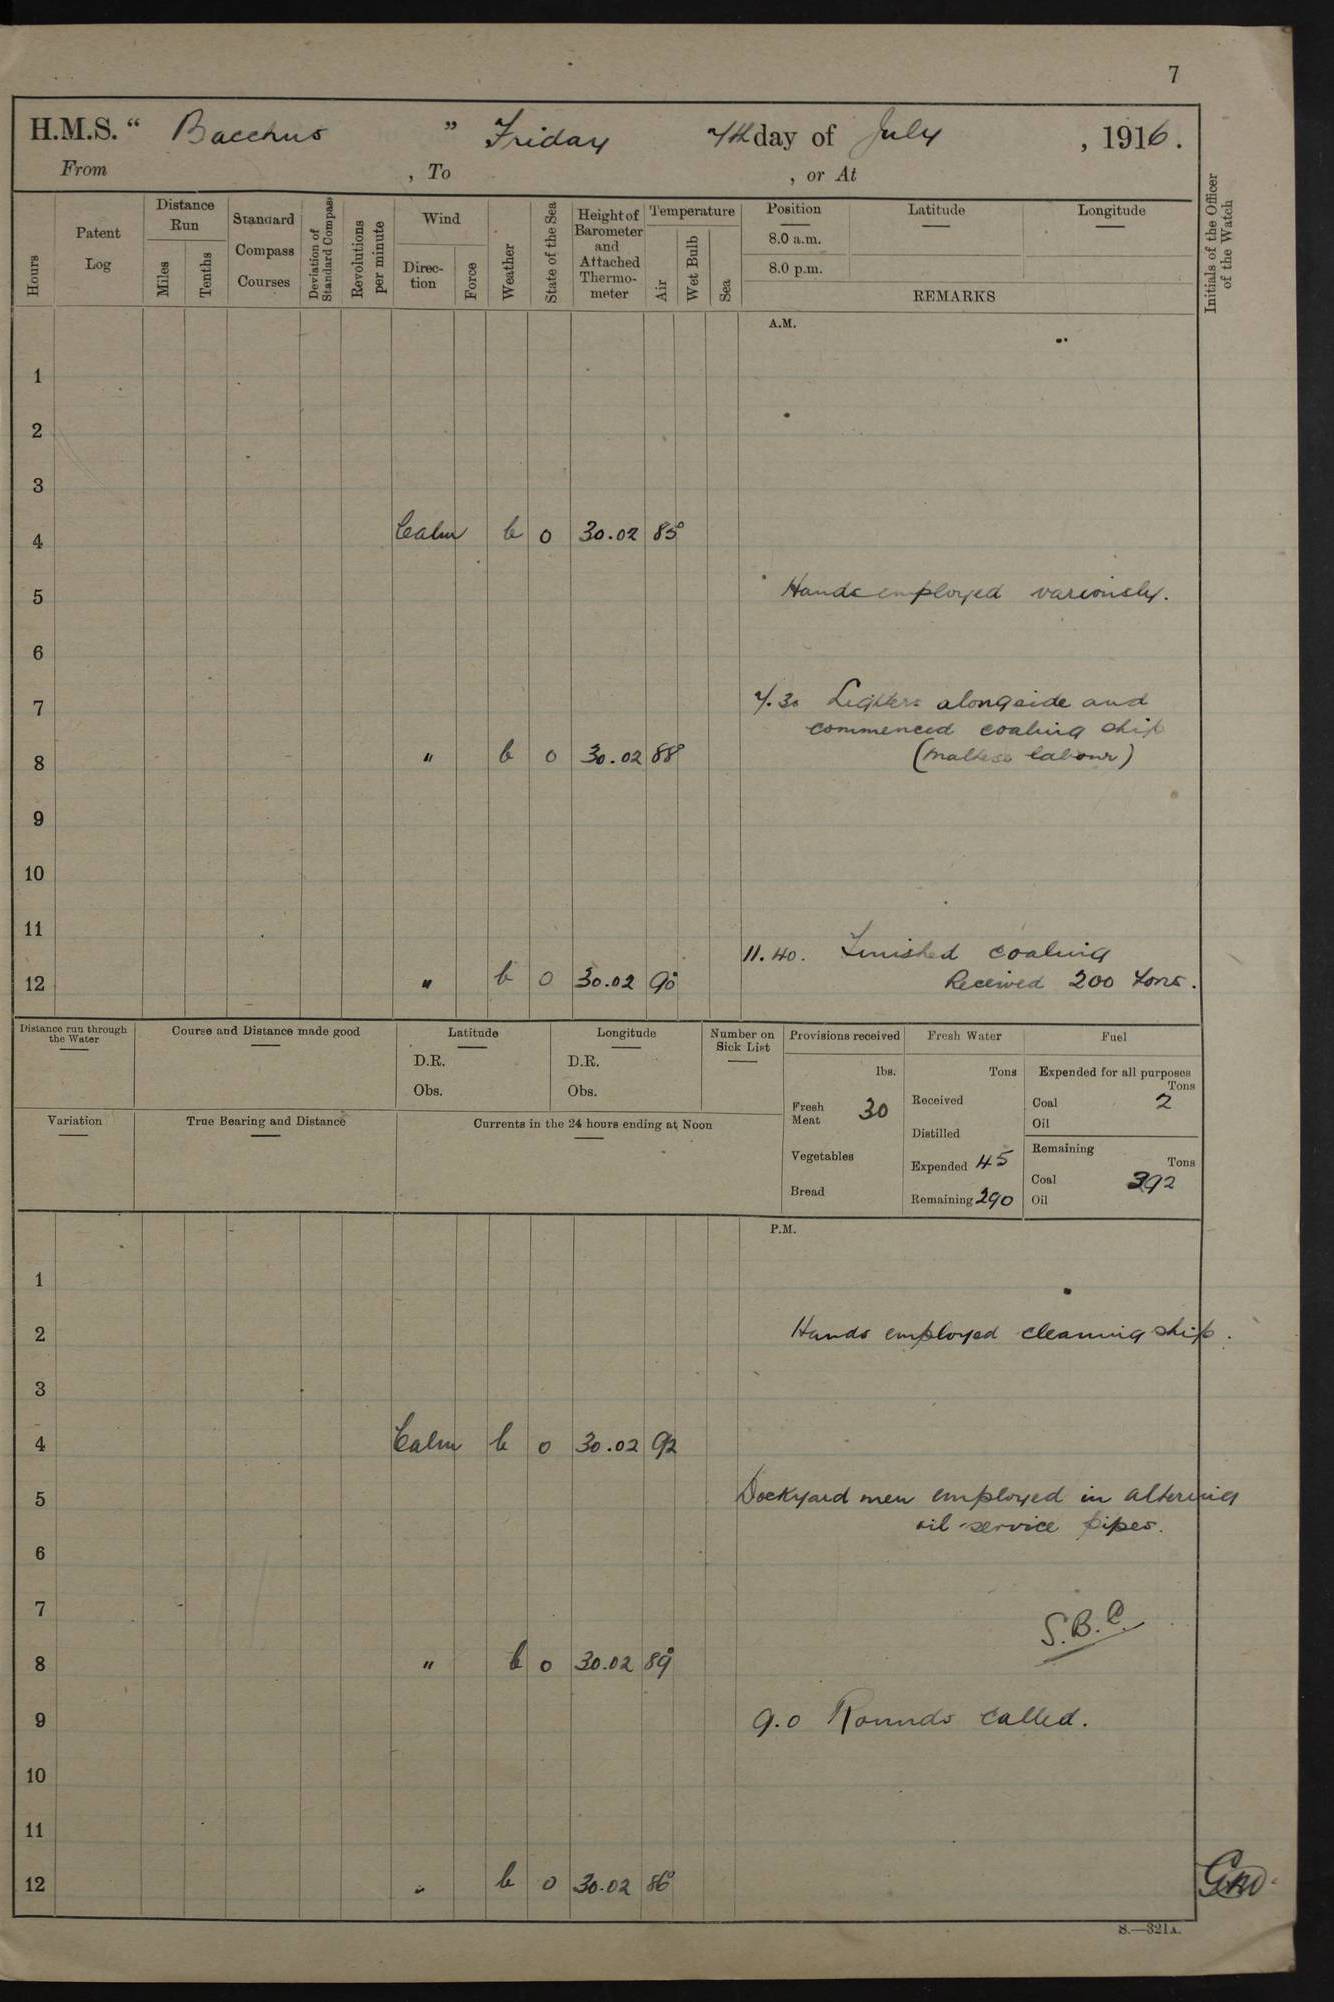 7
H.M.S. " Bacchus " Friday 7th day of July , 1916.
From , To , or At
Hours
Patent Log
Distance Run
Miles
Tenths
Standard Compass Courses
Deviation of Standard Compass
Revolutions per minute
Wind
Direction
Force
Weather
State of the Sea
Height of Barometer and Attached Thermometer
Temperature
Air
Wet Bulb
Sea
Position
Latitude
Longitude
8.0 a.m.
8.0 p.m.
REMARKS
Initials of the Officer of the Watch
A.M.
1
2
3
4 Calm b 0 30.02 85°
5 Hands employed variously.
6
7 7.30 Lighters alongside and
commenced coaling ship
8 " b 0 30.02 88° (Maltese labour)
9
10
11
11.40. Finished coaling
12 " b 0 30.02 90° Received 200 tons.
Distance run through the Water
Course and Distance made good
Latitude
D.R.
Obs.
Longitude
D.R.
Obs.
Number on Sick List
Provisions received
lbs.
Fresh Meat 30
Vegetables
Bread
Fresh Water
Tons
Received
Distilled
Expended 45
Remaining 290
Fuel
Expended for all purposes
Tons
Coal 2
Oil
Remaining
Tons
Coal 392
Oil
Variation
True Bearing and Distance
Currents in the 24 hours ending at Noon
P.M.
1
2 Hands employed cleaning ship.
3
4 Calm b 0 30.02 92
5 Dockyard men employed in altering
oil service pipes.
6
7 S.B.C.
8 " b 0 30.02 89°
9 9.0 Rounds called.
10
11
12 " b 0 30.02 86°
S.—321A.